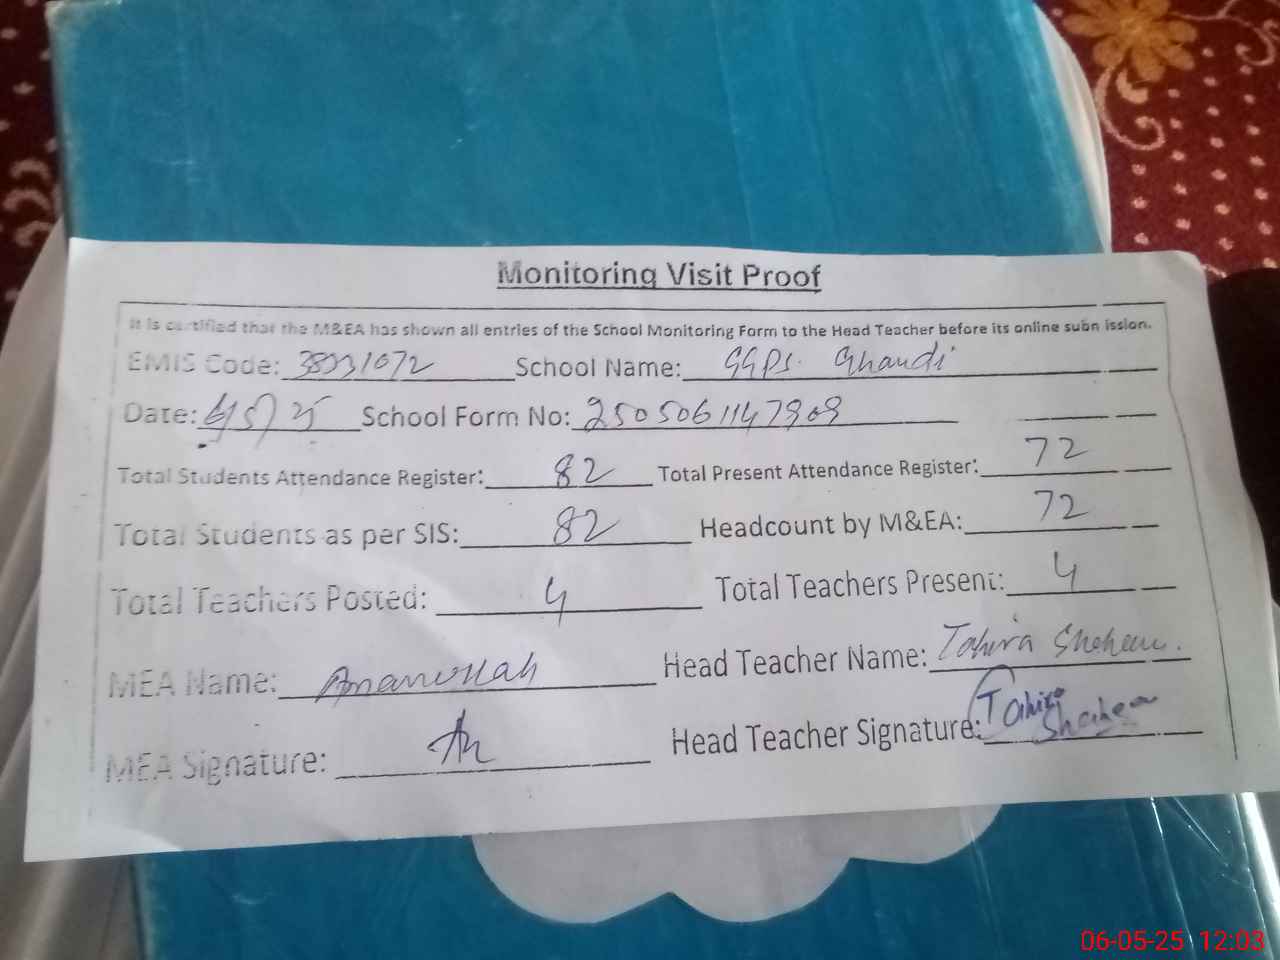 Monitoring Visit Proof
It is certified that the M&EA has shown all entries of the School Monitoring Form to the Head Teacher before its online subn ission.
EMIS Code: School Name: GGPS. Ghandi
Date: 6/5/25 School Form No: 2505061147909
Total Students Attendance Register: 82 Total Present Attendance Register: 72
Total Students as per SIS: 82 Headcount by M&EA: 72
Total Teachers Posted: 4 Total Teachers Present: 4
MEA Name: Amanullah Head Teacher Name: Tahira Shaheen.
MEA Signature: Head Teacher Signature: Tahira Shaheen
06-05-25 12:03